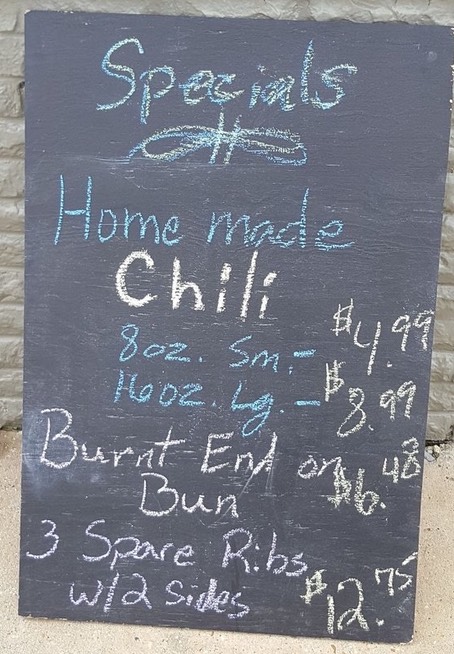 Specials
Home made
Chili
8oz. Sm. - $4.99
16oz. Lg. - $8.99
Burnt End on
Bun $6.48
3 Spare Ribs
w/2 Sides $12.75